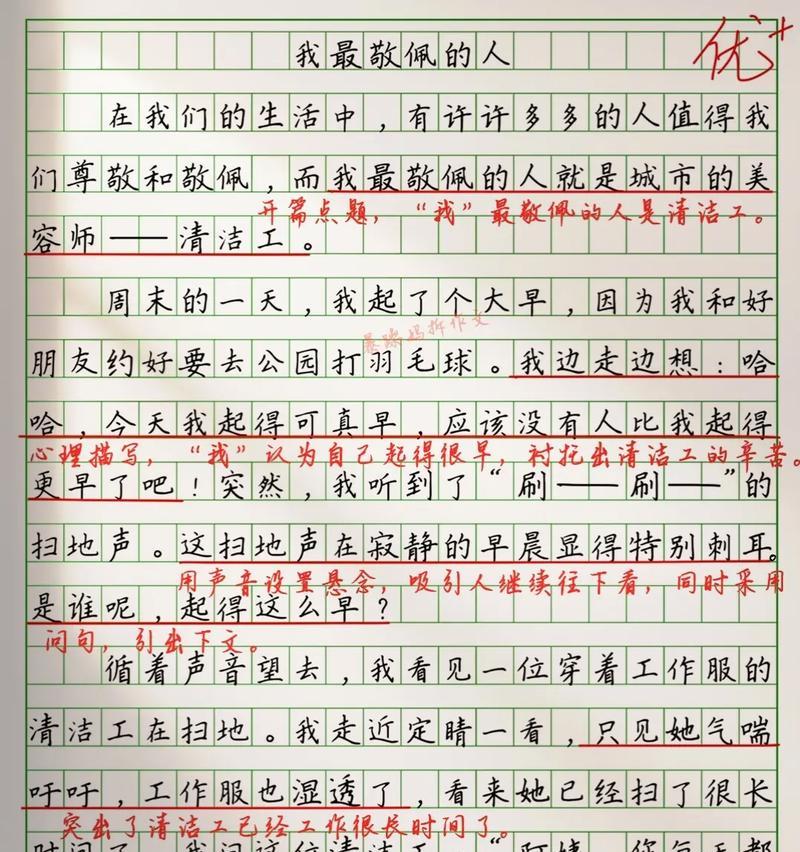 我最敬佩的人
优+
在我们的生活中，有许许多多的人值得我
们尊敬和敬佩，而我最敬佩的人就是城市的美
开篇点题，“我”最敬佩的人是清洁工。
容师——清洁工。
周末的一天，我起了个大早，因为我和好
朋友约好要去公园打羽毛球。我边走边想：哈
哈，今天我起得可真早，应该没有人比我起得
心理描写，“我”认为自己起得很早，衬托出清洁工的辛苦。
更早了吧！突然，我听到了“刷——刷——”的
扫地声。这扫地声在寂静的早晨显得特别刺耳。
用声音设置悬念，吸引人继续往下看，同时采用
是谁呢，起得这么早？
问句，引出下文。
循着声音望去，我看见一位穿着工作服的
清洁工在扫地。我走近定睛一看，只见她气喘
吁吁，工作服也湿透了，看来她已经扫了很长
突出了清洁工已经工作很长时间了。